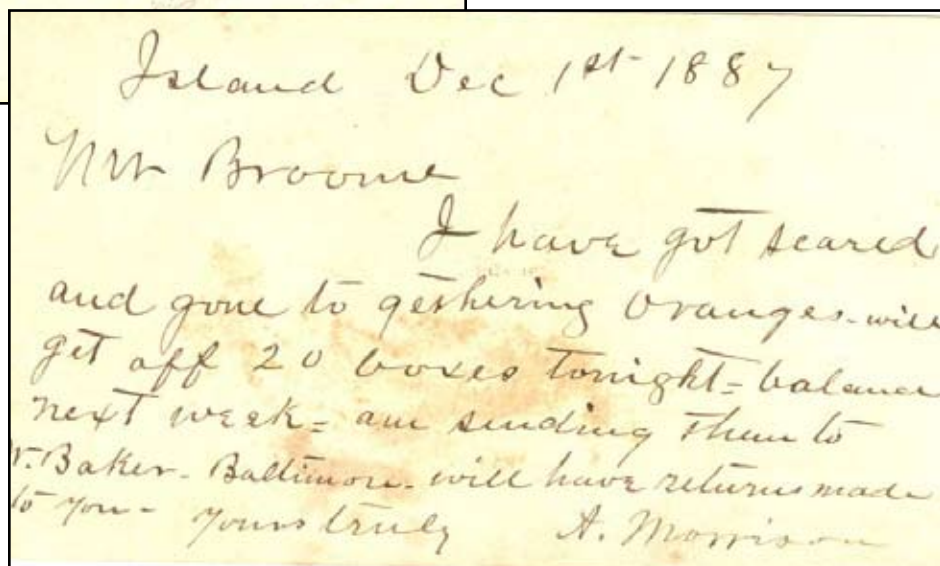 Island Dec 1st 1887
Mr Broome
I have got scared
and gone to gethering oranges - will
get off 20 boxes tonight - balance
next week - am sending them to
r. Baker - Baltimore - will have returns made
to you - yours truly A. Morrison